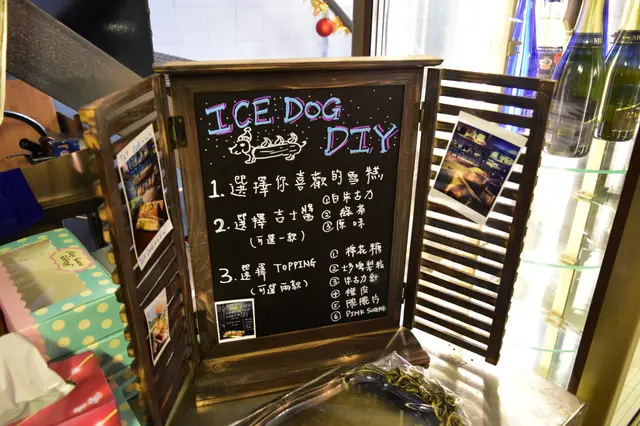 ICE DOG
DIY
1. 選擇你喜歡的雪糕
2. 選擇吉士醬
(可選一款)
① 白朱古力
② 綠茶
③ 原味
3. 選擇 TOPPING
(可選兩款)
① 棉花糖
② 士多啤梨粒
③ 朱古力
④ 橙皮
⑤ 脆脆片
⑥ PINK